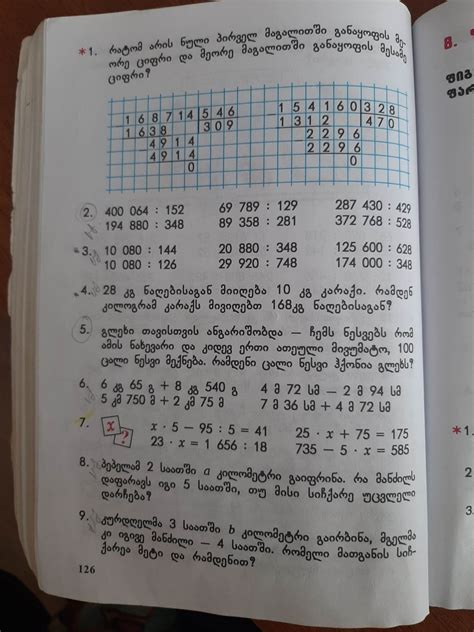 *1. რატომ არის ნული პირველ მაგალითში განაყოფის მე-
ორე ციფრი და მეორე მაგალითში განაყოფის მესამე
ციფრი?
168714 546
1638 309
4914
4914
0
154160 328
1312 470
2296
2296
0
2. 400 064 : 152 69 789 : 129 287 430 : 429
194 880 : 348 89 358 : 281 372 768 : 528
3. 10 080 : 144 20 880 : 348 125 600 : 628
10 080 : 126 29 920 : 748 174 000 : 348
4. 28 კგ ნაღებისაგან მიიღება 10 კგ კარაქი. რამდენ
კილოგრამ კარაქს მივიღებთ 168კგ ნაღებისაგან?
5. გლეხი თავისთვის ანგარიშობდა — ჩემს ნესვებს რომ
ამის ნახევარი და კიდევ ერთი ათეული მივუმატო, 100
ცალი ნესვი მექნება. რამდენი ცალი ნესვი ჰქონია გლეხს?
6. 6 კგ 65 გ + 8 კგ 540 გ 4 მ 72 სმ — 2 მ 94 სმ
5 კმ 750 მ + 2 კმ 75 მ 7 მ 36 სმ + 4 მ 72 სმ
7. x ? x · 5 — 95 : 5 = 41 25 · x + 75 = 175
23 · x = 1 656 : 18 735 — 5 · x = 585
8. პეპელამ 2 საათში a კილომეტრი გაიფრინა. რა მანძილს
დაფარავს იგი 5 საათში, თუ მისი სიჩქარე უცვლელი
დარჩება?
9. კურდღელმა 3 საათში b კილომეტრი გაირბინა, მგელმა
კი იგივე მანძილი — 4 საათში. რომელი მათგანის სიჩ-
ქარეა მეტი და რამდენით?
126
8.
ფიგ
ფარ
*1.
3.